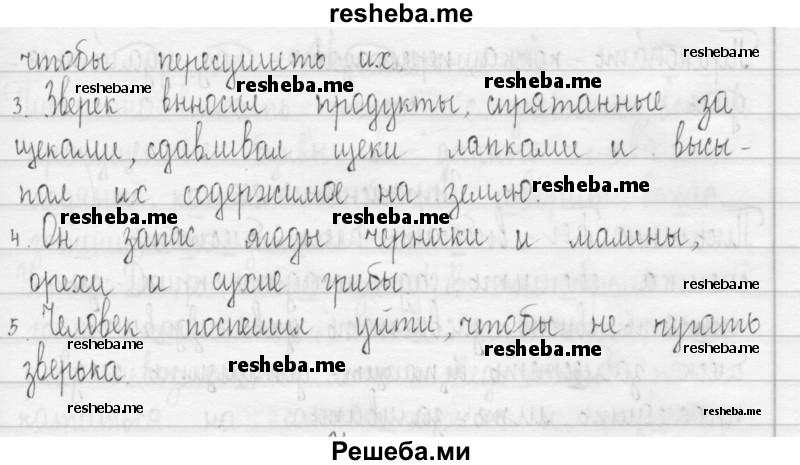 resheba.me
чтобы пересушить их.
resheba.me
resheba.me
resheba.me
3. Зверек выносил продукты, спрятанные за
щеками, сдавливал щеки лапками и высы-
пал их содержимое на землю.
resheba.me
resheba.me
resheba.me
4. Он запас ягоды черники и малины,
орехи и сухие грибы.
resheba.me
5. Человек поспешил уйти, чтобы не пугать
зверька.
resheba.me
resheba.me
resheba.me
resheba.me
resheba.me
Решеба.ми